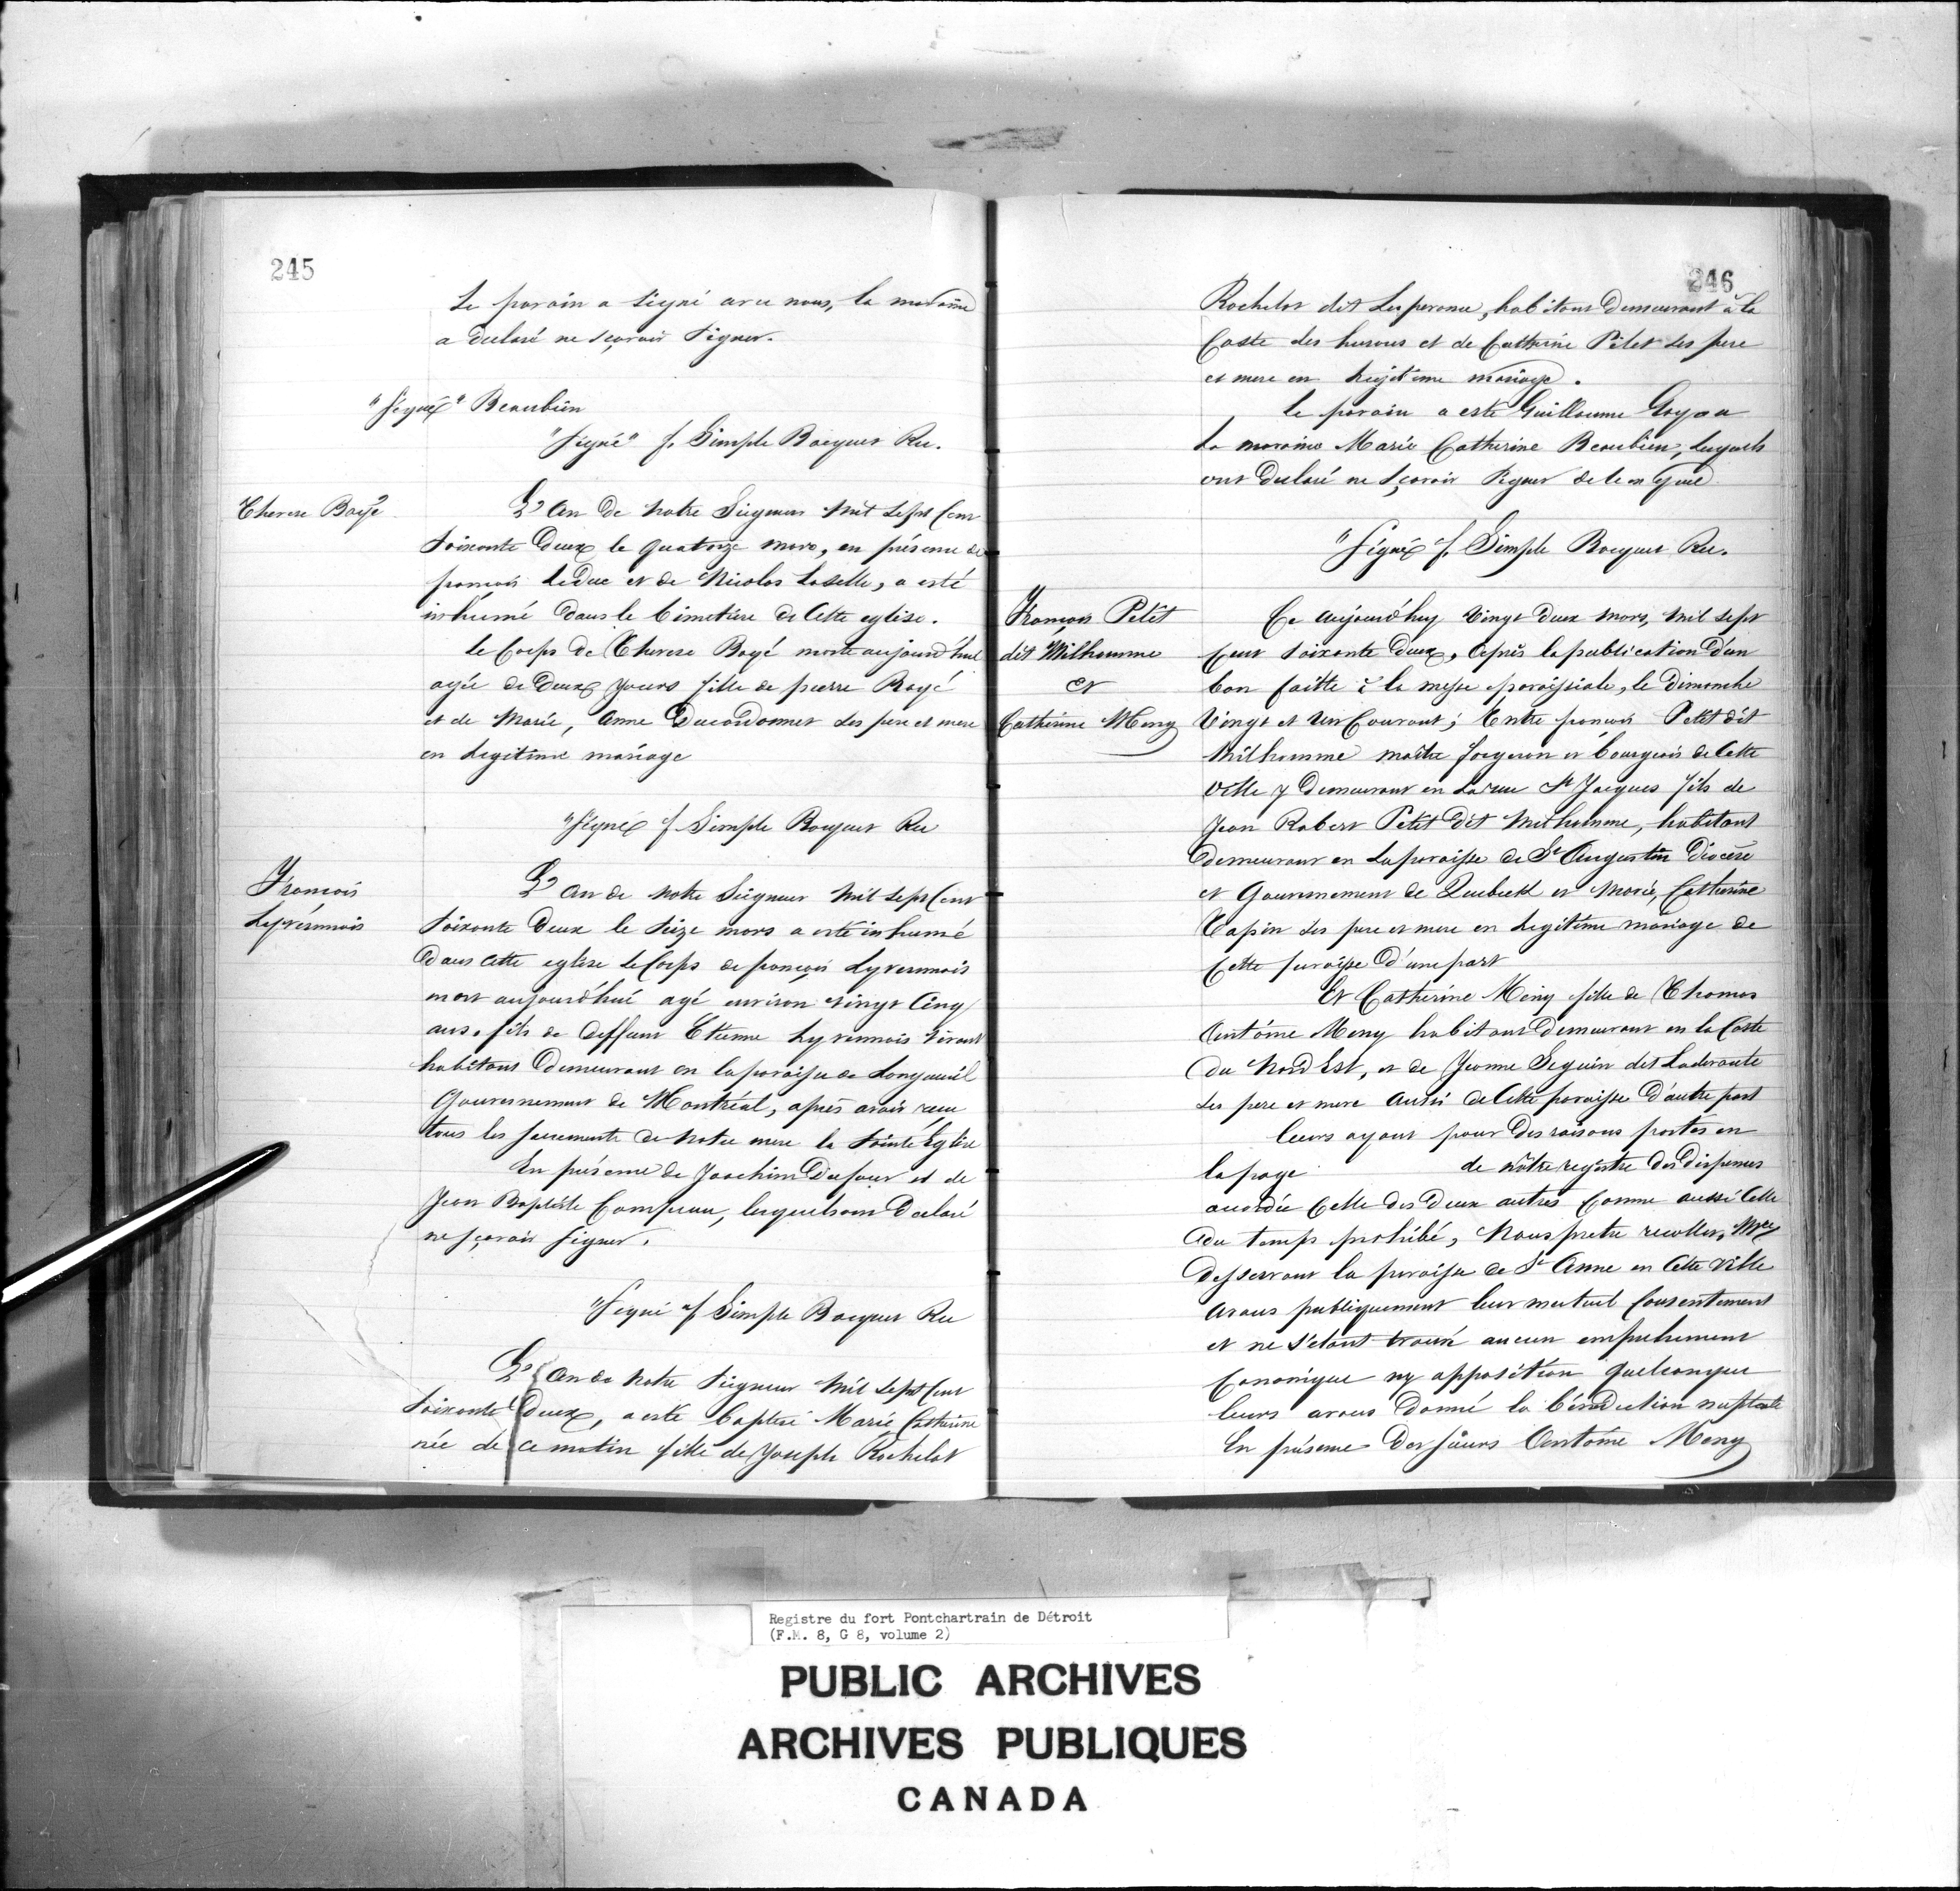 245
Le parain a signé avec nous, la maraine
a declaré ne sçavoir signer.
"Signé" Beaubien
"Signé" f. Simple Bocquet Rec.
Therese Boyé
L'An de notre Seigneur mil sept cent
soixante deux le quatorze mars, en présence de
françois LeDuc et de Nicolas Laselle, a esté
inhumé dans le Cimetière de Cette eglise.
le Corps de Therese Boyé morte aujourd'hui
agée de Deux jours fille de pierre Boyé
et de Marie, Anne Ducordonnet ses pere et mere
en Legitime mariage
"Signé f. Simple Bocquet Rec
François
Lyvernnois
L'An de notre Seigneur mil sept Cent
soixante Deux le seize mars a esté inhumé
Dans cette eglise le Corps de françois Lyvernnois
mort aujourd'hui agé environ vingt Cinq
ans. fils de deffunt Etienne Lyvernnois vivant
habitant Demeurant en la paroisse de Longueuil
Gouvernement de Montréal, après avoir reçu
tous les sacrements de notre mere la sainte Eglise
En présence de Joachim Dufour et de
Jean Baptiste Campeau, lesquels ont Declaré
ne sçavoir signer.
"Signé "f Simple Bocquet Rec
L'An de notre seigneur mil sept cent
soixante Deux, a esté baptisé Marie Catherine
née de ce matin fille de Joseph Rochelot
246
Rochelot dit Lesperance, habitant Demeurant à la
Coste des hurons et de Catherine Pilet ses pere
et mere en Legitime mariage.
le parain a esté Guillaume Goyau
la maraine Marie Catherine Beaubien, lesquels
ont Declaré ne sçavoir signer de ce enquis
"Signé f. Simple Bocquet Rec.
François Petit
dit Milhomme
et
Catherine Meny
Ce aujourd'huy vingt deux mars, mil sept
Cent soixante deux, après la publication d'un
ban faitte à la messe paroissiale, le Dimanche
Vingt et un Courant; Entre françois Petit dit
Milhomme maître forgeron et bourgeois de Cette
Ville y Demeurant en La rue St Jacques fils de
Jean Robert Petit dit Milhomme, habitant
demeurant en La paroisse de St Augustin Diocèse
et Gouvernement de Quebeck et Marie, Catherine
Tapin ses pere et mere en Legitime mariage de
Cette paroisse D'une part
Et Catherine Meny fille de Thomas
Antoine Meny habitant Demeurant en la Coste
du Nord Est, et de Jeanne Seguin dit Laderoute
ses pere et mere Aussi de Cette paroisse D'autre part
leurs ayant pour des raisons portés en
la page de nôtre registre des dispenses
accordée Celle des Deux autres Comme aussi Celle
du temps prohibé, Nous pretre recollet, Mre
Desservant la paroisse de Ste Anne en Cette Ville
avons publiquement leur mutuel Consentement
et ne s'etant trouvé aucun empechement
Canonique ny opposition quelconque
leurs avons Donné la bénédiction nuptiale
En présence Des sieurs Antoine Meny
Registre du fort Pontchartrain de Détroit
(F.M. 8, G 8, volume 2)
PUBLIC ARCHIVES
ARCHIVES PUBLIQUES
CANADA